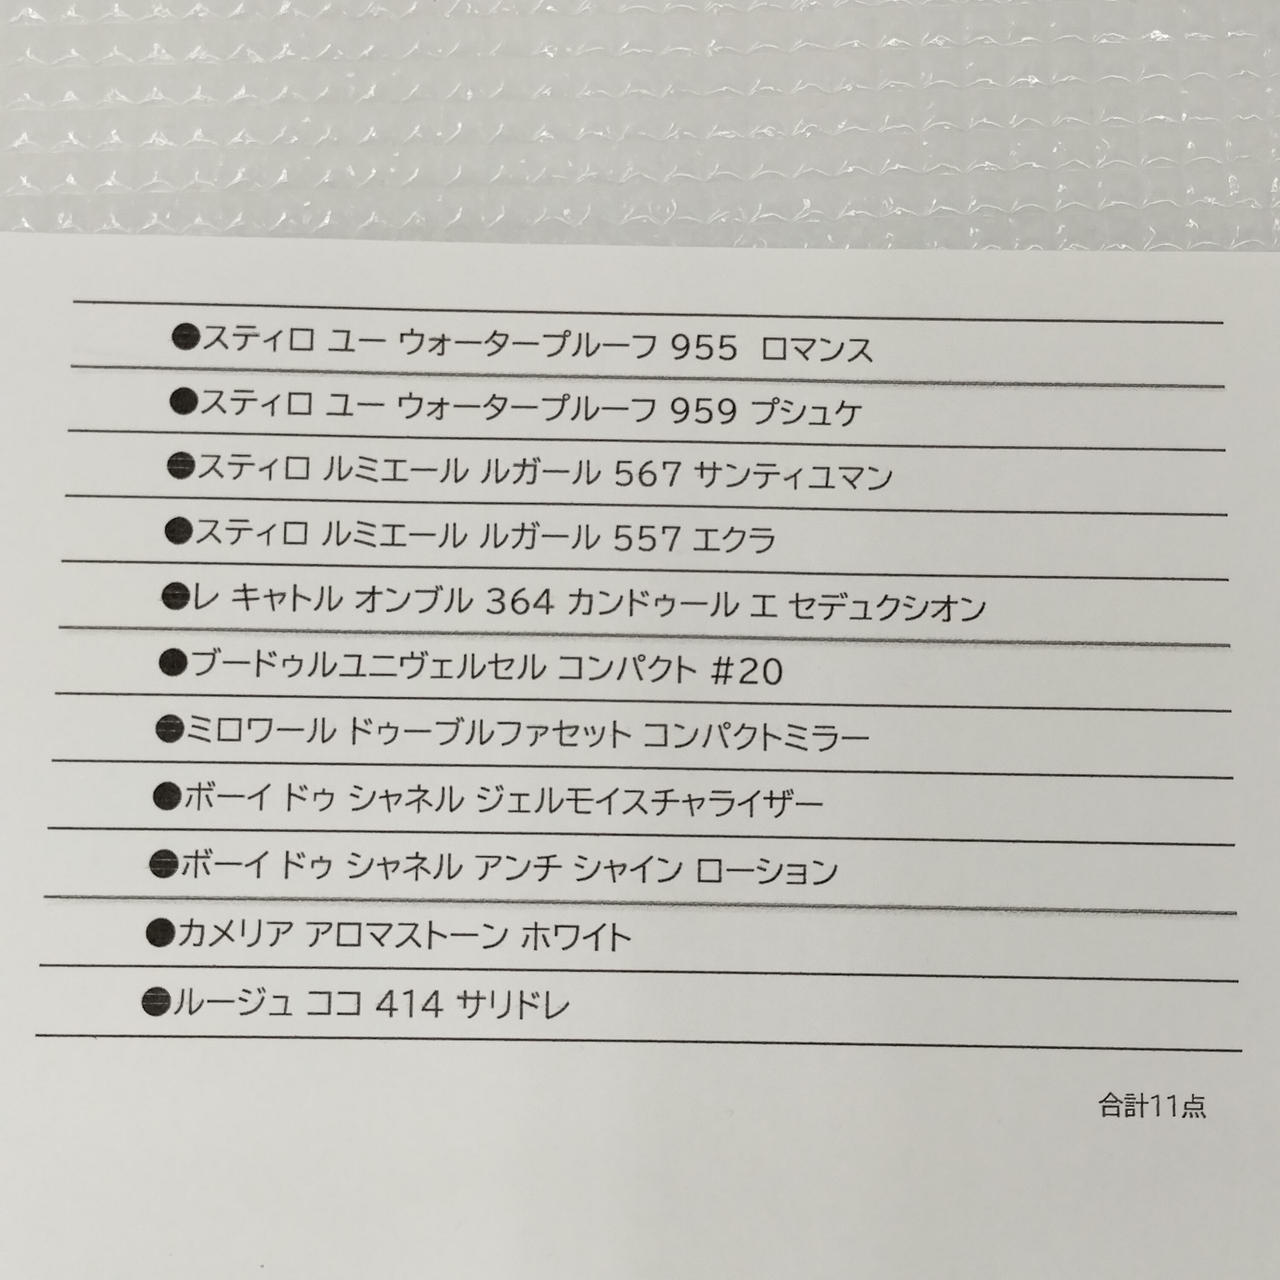 ●スティロ ユー ウォータープルーフ 955 ロマンス
●スティロ ユー ウォータープルーフ 959 プシュケ
●スティロ ルミエール ルガール 567 サンティユマン
●スティロ ルミエール ルガール 557 エクラ
●レ キャトル オンブル 364 カンドゥール エ セデュクシオン
●ブードゥルユニヴェルセル コンパクト #20
●ミロワール ドゥーブルファセット コンパクトミラー
●ボーイ ドゥ シャネル ジェルモイスチャライザー
●ボーイ ドゥ シャネル アンチ シャイン ローション
●カメリア アロマストーン ホワイト
●ルージュ ココ 414 サリドレ
合計11点